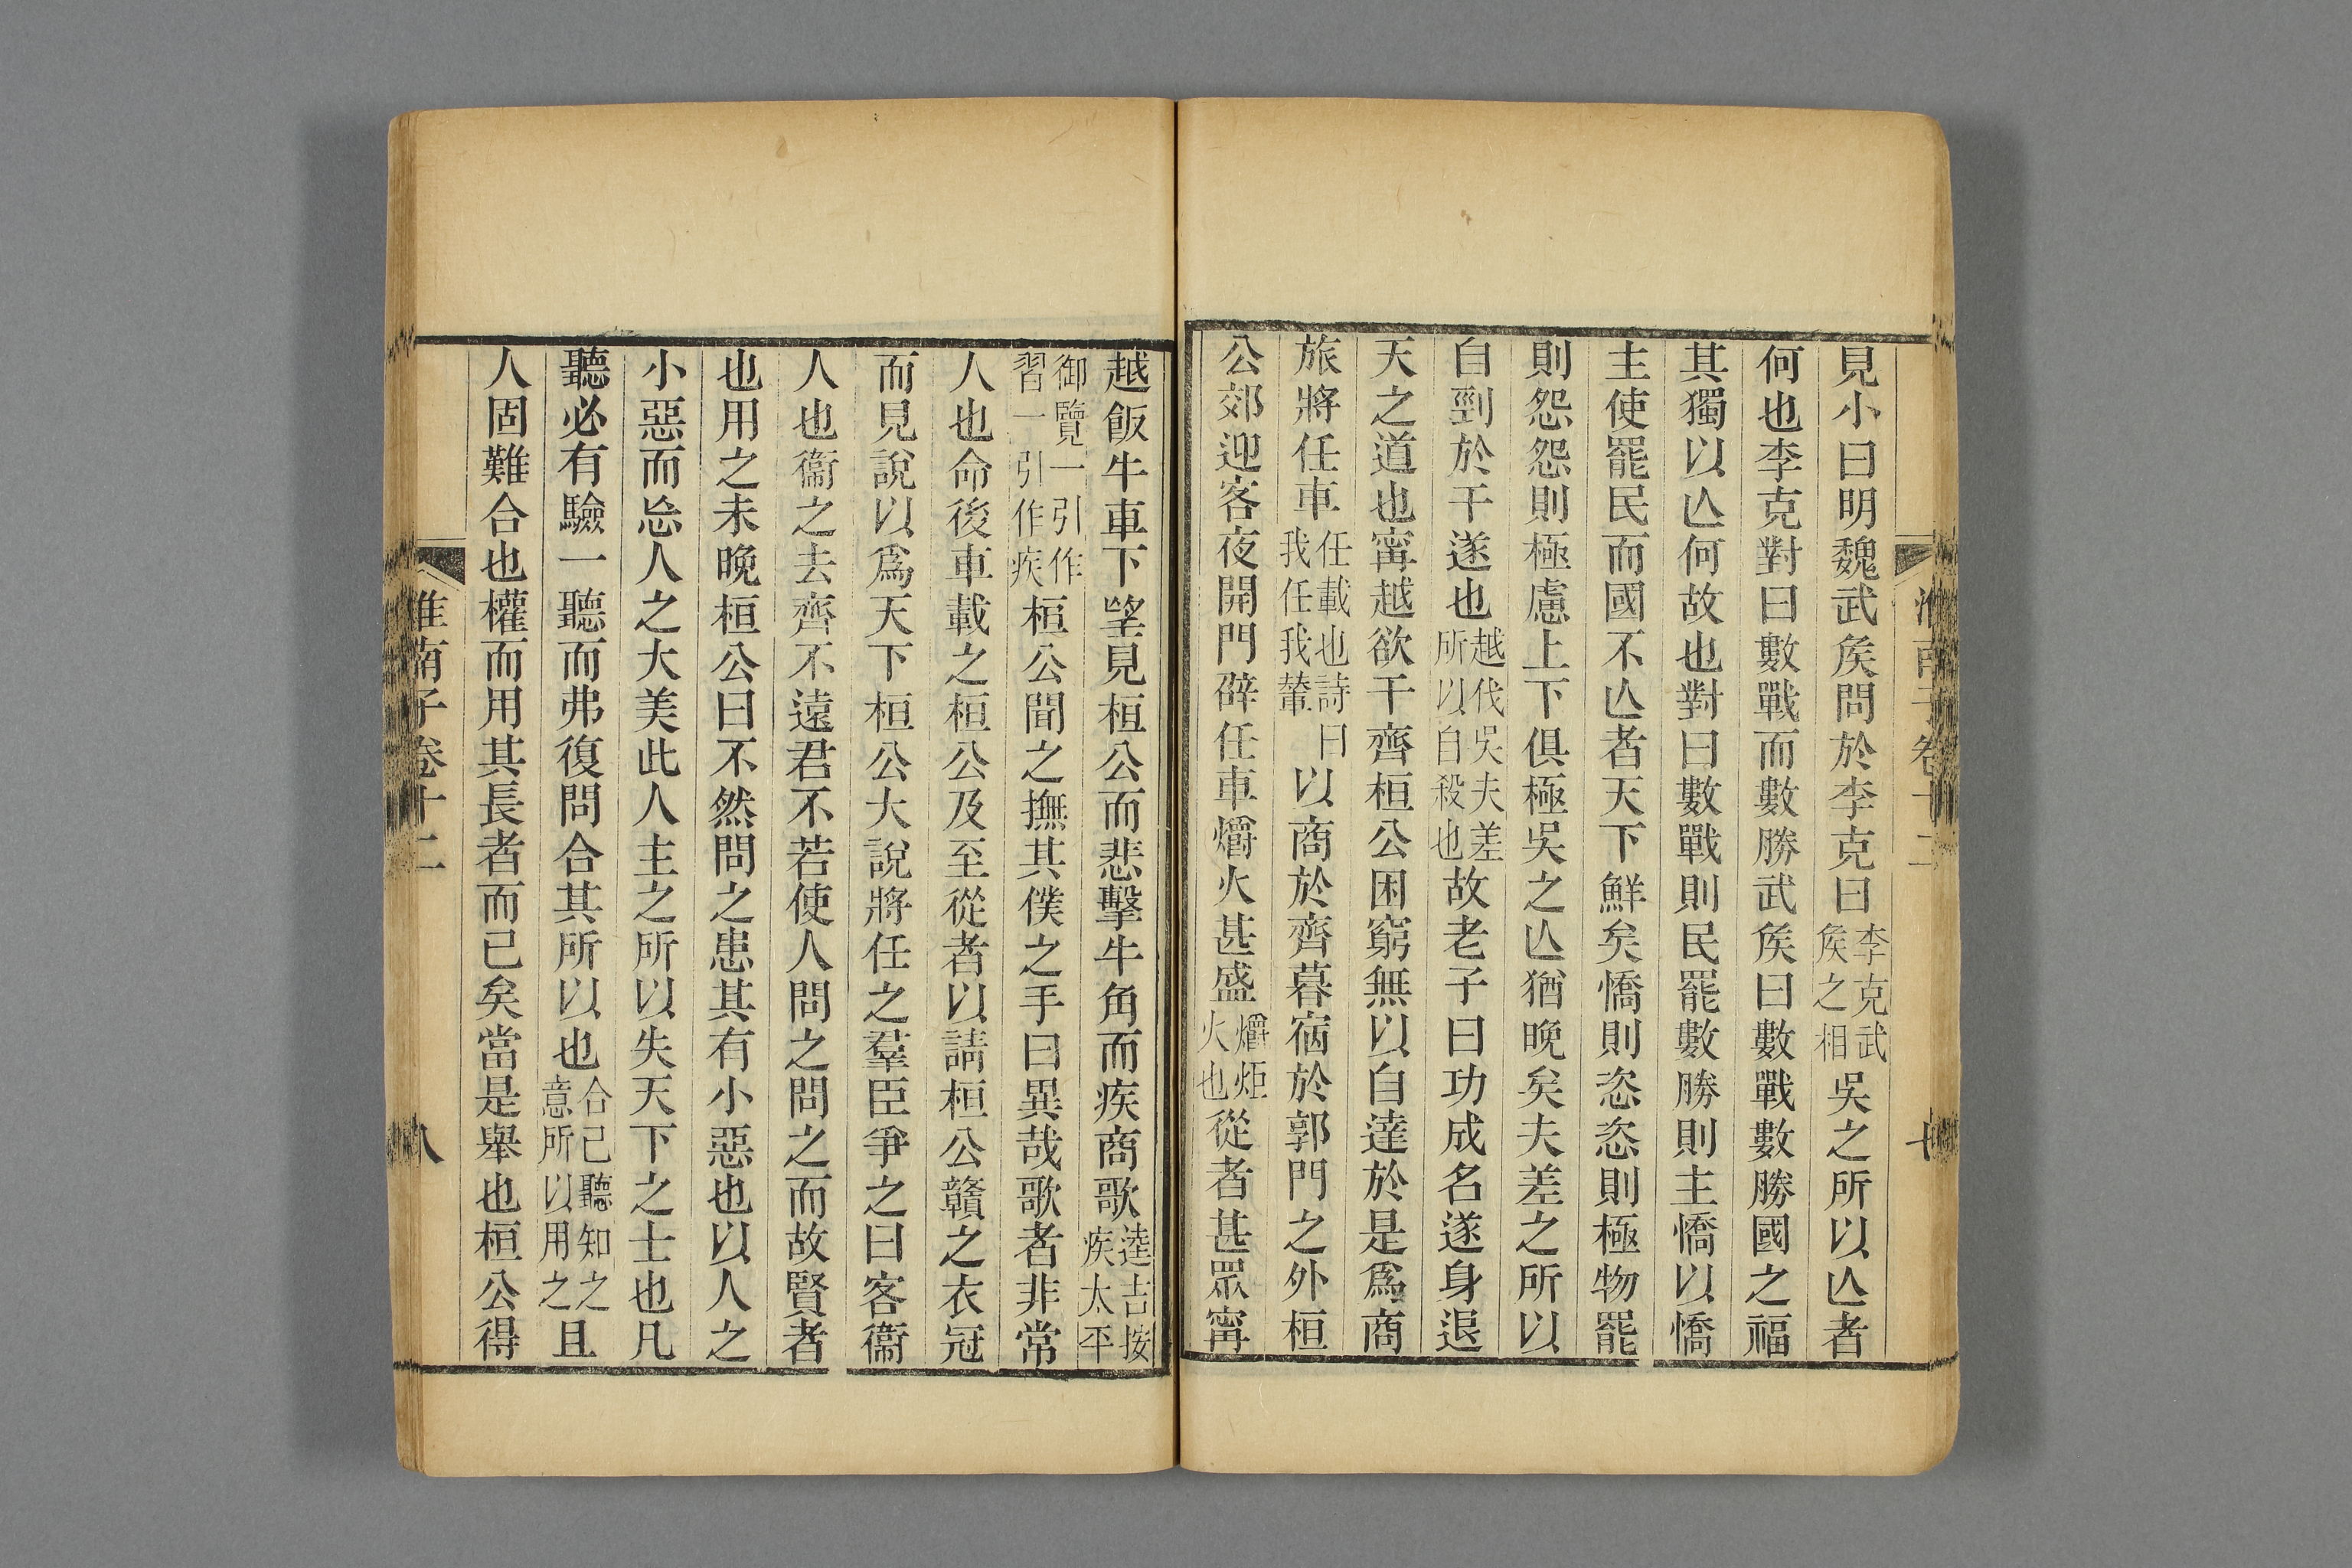 淮南子卷十二
七
見小曰明魏武矦問於李克曰李克武矦之相吳之所以亾者
何也李克對曰數戰而數勝武矦曰數戰數勝國之福
其獨以亾何故也對曰數戰則民罷數勝則主憍以憍
主使罷民而國不亾者天下鮮矣憍則恣恣則極物罷
則怨怨則極慮上下俱極吳之亾猶晚矣夫差之所以
自剄於干遂也越伐吳夫差所以自殺也故老子曰功成名遂身退
天之道也甯越欲干齊桓公困窮無以自達於是爲商
旅將任車任載也詩曰我任我輦以商於齊暮宿於郭門之外桓
公郊迎客夜開門辟任車爝火甚盛爝炬火也從者甚眾甯
越飯牛車下望見桓公而悲擊牛角而疾商歌逵吉按疾太平
御覽一引作習一引作疾桓公聞之撫其僕之手曰異哉歌者非常
人也命後車載之桓公及至從者以請桓公贛之衣冠
而見說以爲天下桓公大說將任之羣臣爭之曰客衞
人也衞之去齊不遠君不若使人問之問之而故賢者
也用之未晚桓公曰不然問之患其有小惡也以人之
小惡而忘人之大美此人主之所以失天下之士也凡
聽必有驗一聽而弗復問合其所以也合己聽知之意所以用之且
人固難合也權而用其長者而已矣當是舉也桓公得
淮南子卷十二
八